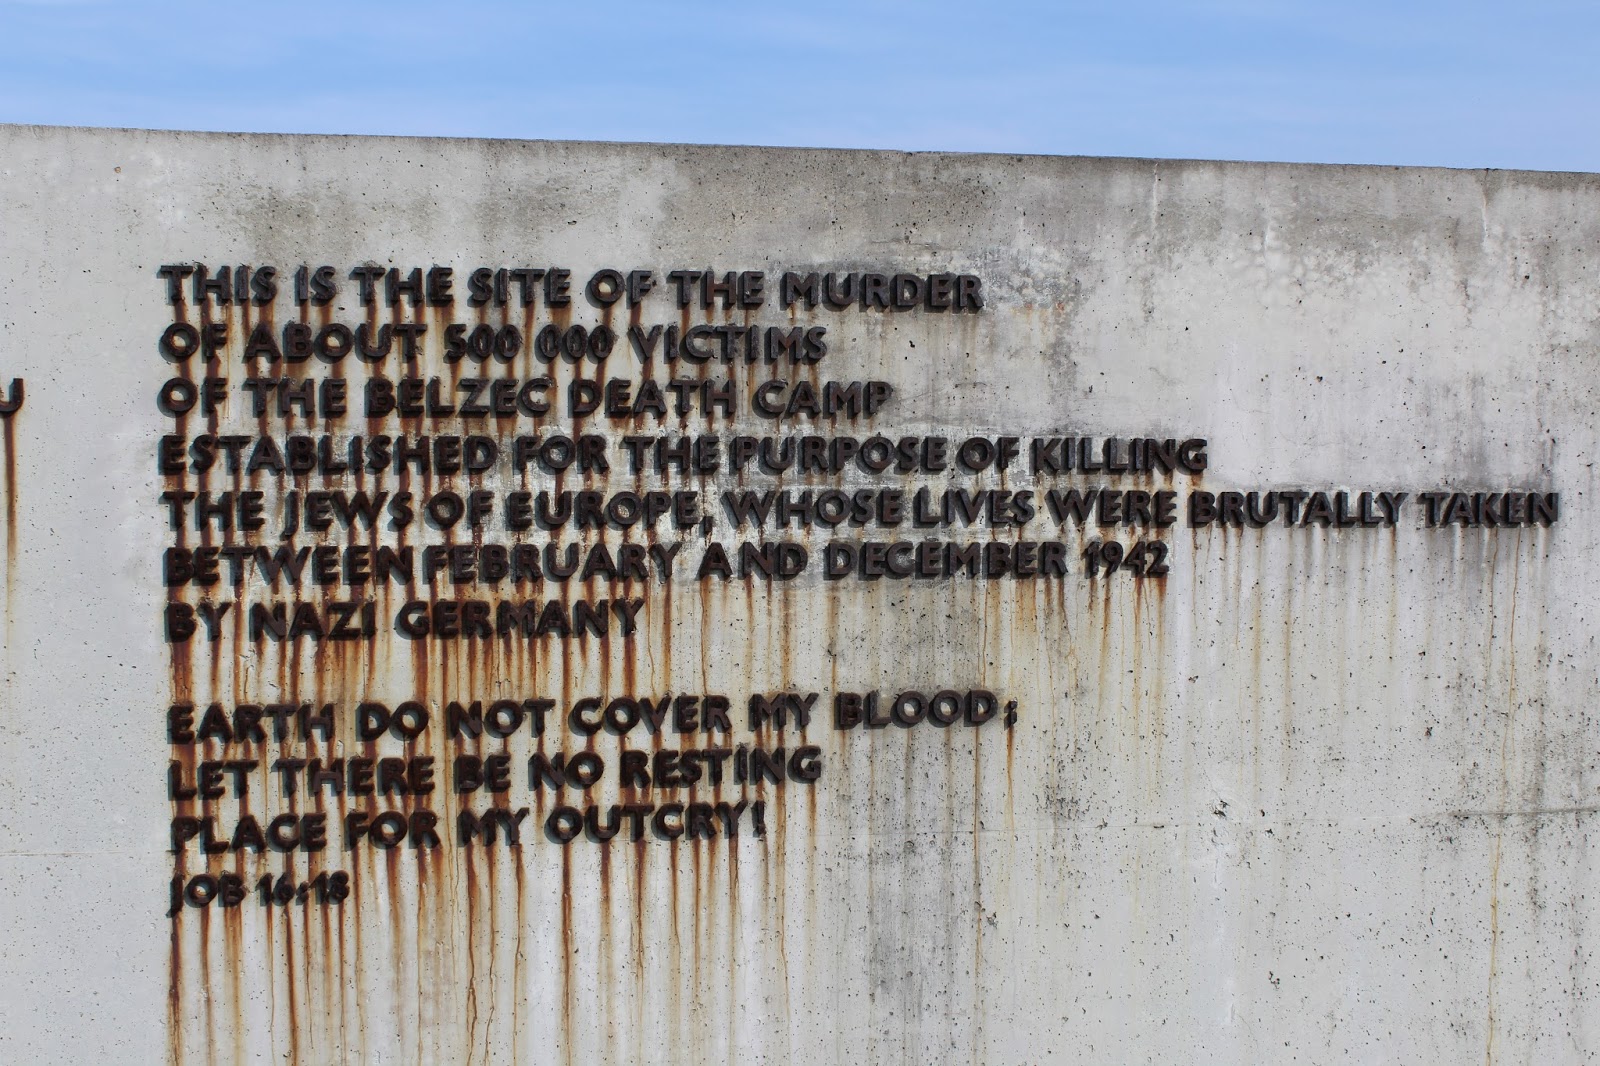 THIS IS THE SITE OF THE MURDER
OF ABOUT 500 000 VICTIMS
OF THE BELZEC DEATH CAMP
ESTABLISHED FOR THE PURPOSE OF KILLING
THE JEWS OF EUROPE, WHOSE LIVES WERE BRUTALLY TAKEN
BETWEEN FEBRUARY AND DECEMBER 1942
BY NAZI GERMANY
EARTH DO NOT COVER MY BLOOD;
LET THERE BE NO RESTING
PLACE FOR MY OUTCRY!
JOB 16:18